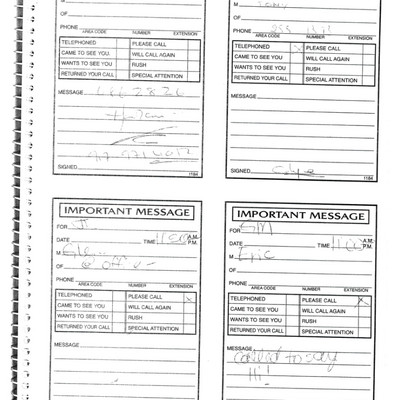 M
OF
PHONE
AREA CODE NUMBER EXTENSION
TELEPHONED PLEASE CALL
CAME TO SEE YOU WILL CALL AGAIN
WANTS TO SEE YOU RUSH
RETURNED YOUR CALL SPECIAL ATTENTION
MESSAGE
SIGNED
1184
M
OF
PHONE
AREA CODE NUMBER EXTENSION
TELEPHONED PLEASE CALL
CAME TO SEE YOU WILL CALL AGAIN
WANTS TO SEE YOU RUSH
RETURNED YOUR CALL SPECIAL ATTENTION
MESSAGE
SIGNED
1184
IMPORTANT MESSAGE
FOR
DATE TIME A.M. P.M.
M
OF
PHONE
AREA CODE NUMBER EXTENSION
TELEPHONED PLEASE CALL X
CAME TO SEE YOU WILL CALL AGAIN
WANTS TO SEE YOU RUSH
RETURNED YOUR CALL SPECIAL ATTENTION
MESSAGE
IMPORTANT MESSAGE
FOR GM
DATE TIME 11:00 A.M. P.M.
M Epic
OF
PHONE
AREA CODE NUMBER EXTENSION
TELEPHONED PLEASE CALL X
CAME TO SEE YOU WILL CALL AGAIN
WANTS TO SEE YOU RUSH
RETURNED YOUR CALL SPECIAL ATTENTION
MESSAGE
Called to say
Hi!